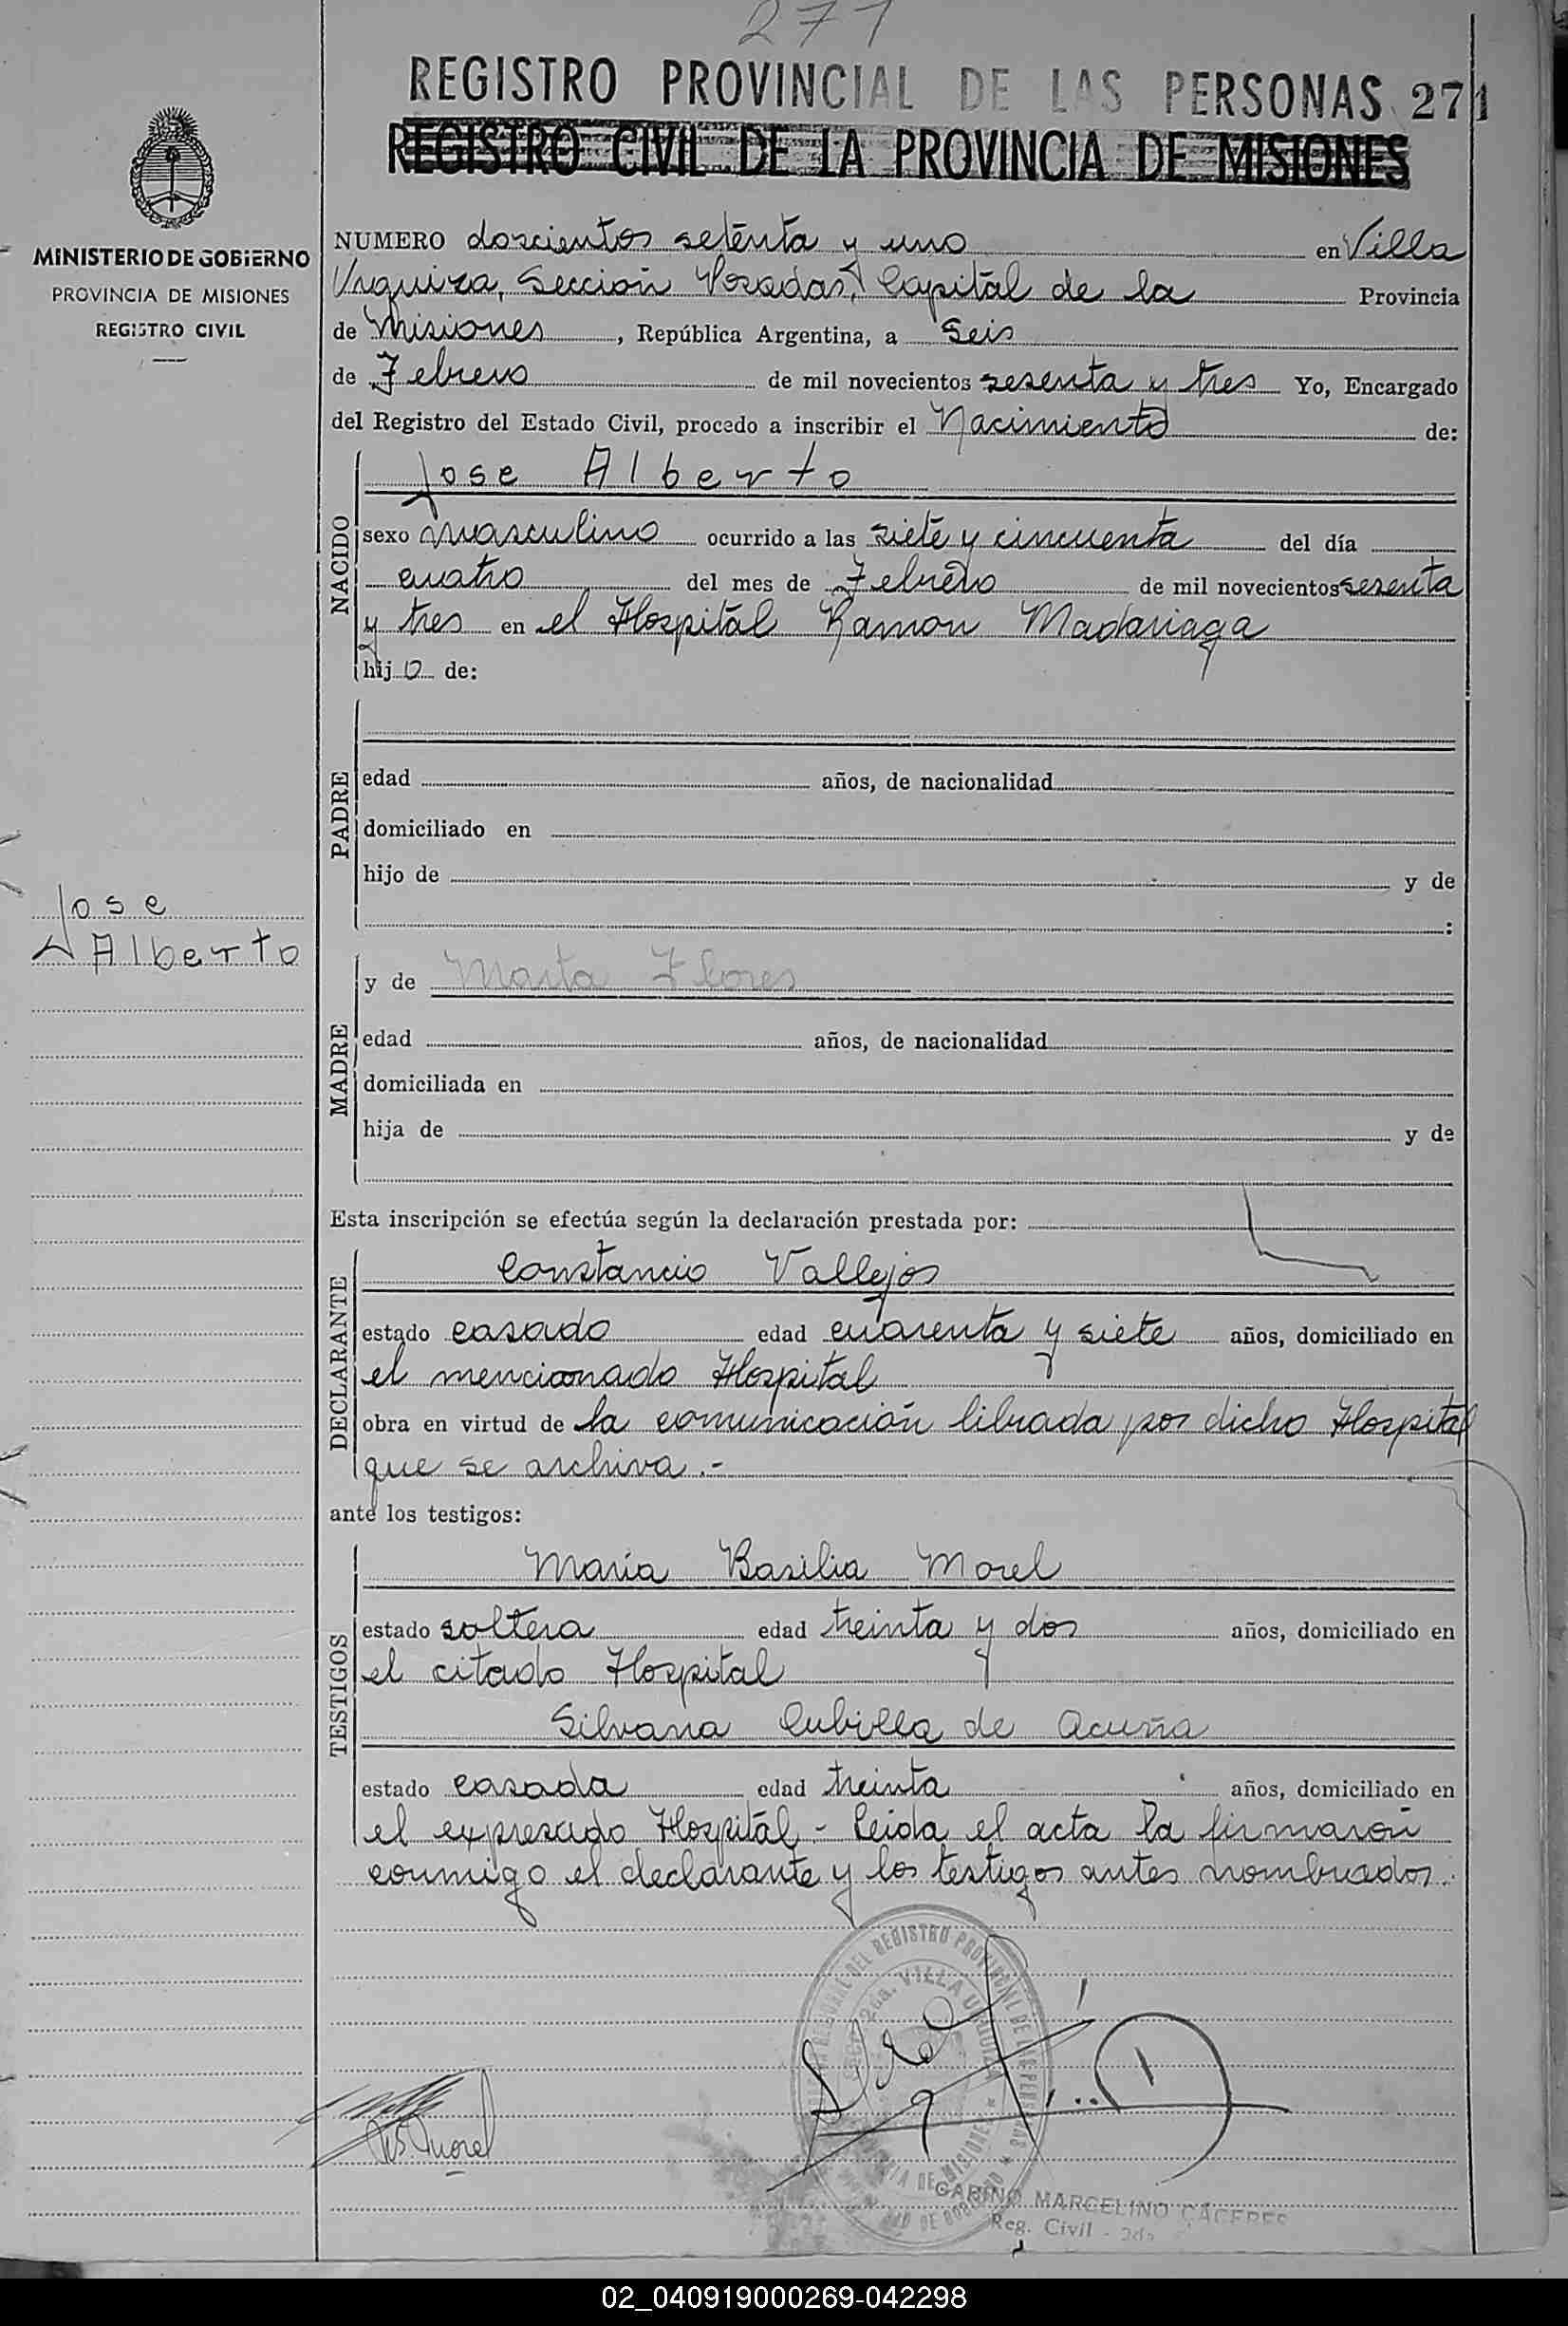 271
REGISTRO PROVINCIAL DE LAS PERSONAS 271
REGISTRO CIVIL DE LA PROVINCIA DE MISIONES
MINISTERIO DE GOBIERNO
PROVINCIA DE MISIONES
REGISTRO CIVIL
NUMERO doscientos setenta y uno en Villa
Urquiza, Sección Posadas, Capital de la Provincia
de Misiones, República Argentina, a Seis
de Febrero de mil novecientos sesenta y tres Yo, Encargado
del Registro del Estado Civil, procedo a inscribir el Nacimiento de:
NACIDO
Jose Alberto
sexo masculino ocurrido a las siete y cincuenta del día
cuatro del mes de Febrero de mil novecientos sesenta
y tres en el Hospital Ramon Madariaga
hijo de:
PADRE
edad años, de nacionalidad
domiciliado en
hijo de y de
:
Jose
Alberto
MADRE
y de Marta Flores
edad años, de nacionalidad
domiciliada en
hija de y de
Esta inscripción se efectúa según la declaración prestada por:
DECLARANTE
Constancio Vallejos
estado casado edad cuarenta y siete años, domiciliado en
el mencionado Hospital
obra en virtud de la comunicación librada por dicho Hospital
que se archiva.-
ante los testigos:
TESTIGOS
Maria Basilia Morel
estado soltera edad treinta y dos años, domiciliado en
el citado Hospital
Silvana Cubilla de Acuña
estado casada edad treinta años, domiciliado en
el expresado Hospital - Leida el acta la firmaron
conmigo el declarante y los testigos antes nombrados.
B. Morel
GABINO MARCELINO CACERES
Reg. Civil - 2da
02_040919000269-042298